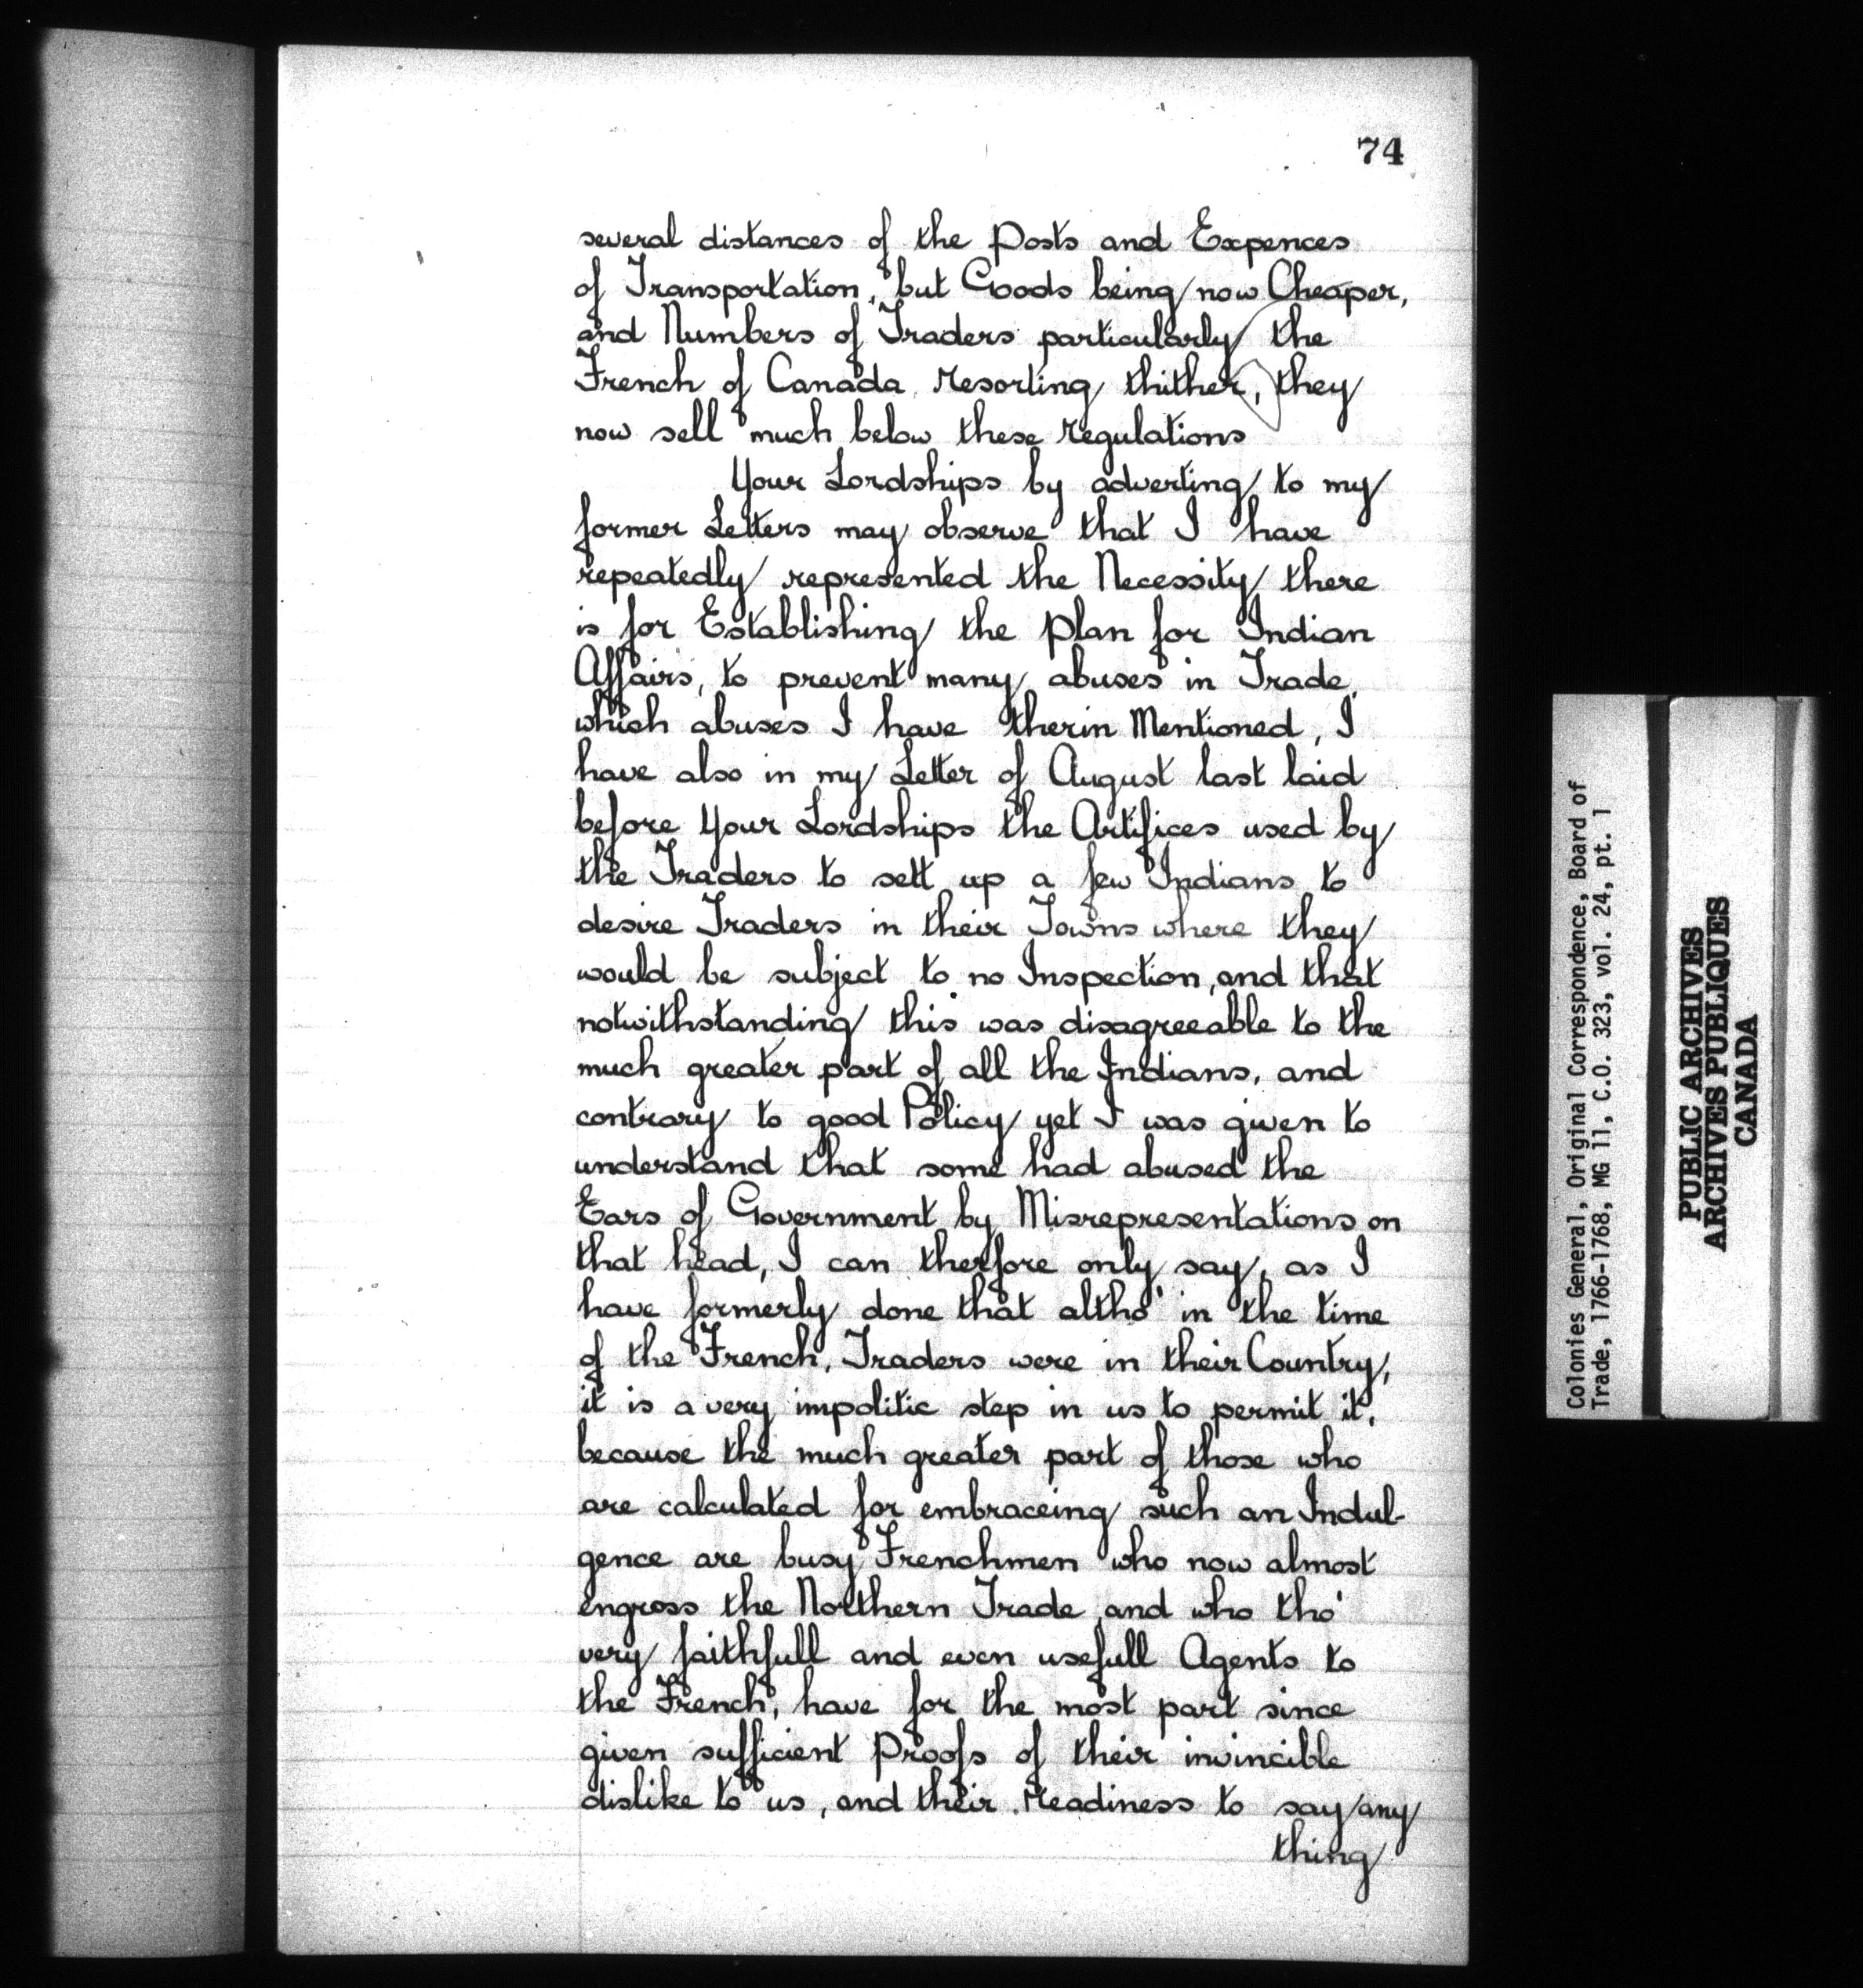 74
several distances of the Posts and Expences
of Transportation, but Goods being now Cheaper,
and Numbers of Traders particularly the
French of Canada resorting thither, they
now sell much below these regulations
Your Lordships by adverting to my
former Letters may observe that I have
repeatedly represented the Necessity there
is for Establishing the Plan for Indian
Affairs, to prevent many abuses in Trade,
which abuses I have therin Mentioned, I
have also in my Letter of August last laid
before Your Lordships the Artifices used by
the Traders to sett up a few Indians to
desire Traders in their Towns where they
would be subject to no Inspection, and that
notwithstanding this was disagreeable to the
much greater part of all the Indians, and
contrary to good Policy yet I was given to
understand that some had abused the
Ears of Government by Misrepresentations on
that head, I can therfore only say, as I
have formerly done that altho' in the time
of the French, Traders were in their Country,
it is a very impolitic step in us to permit it,
because the much greater part of those who
are calculated for embraceing such an Indul-
gence are busy Frenchmen who now almost
engross the Northern Trade, and who tho'
very faithfull and even usefull Agents to
the French, have for the most part since
given sufficient Proofs of their invincible
dislike to us, and their readiness to say any
thing
Colonies General, Original Correspondence, Board of
Trade, 1766-1768, MG 11, C.O. 323, vol. 24, pt. 1
PUBLIC ARCHIVES
ARCHIVES PUBLIQUES
CANADA